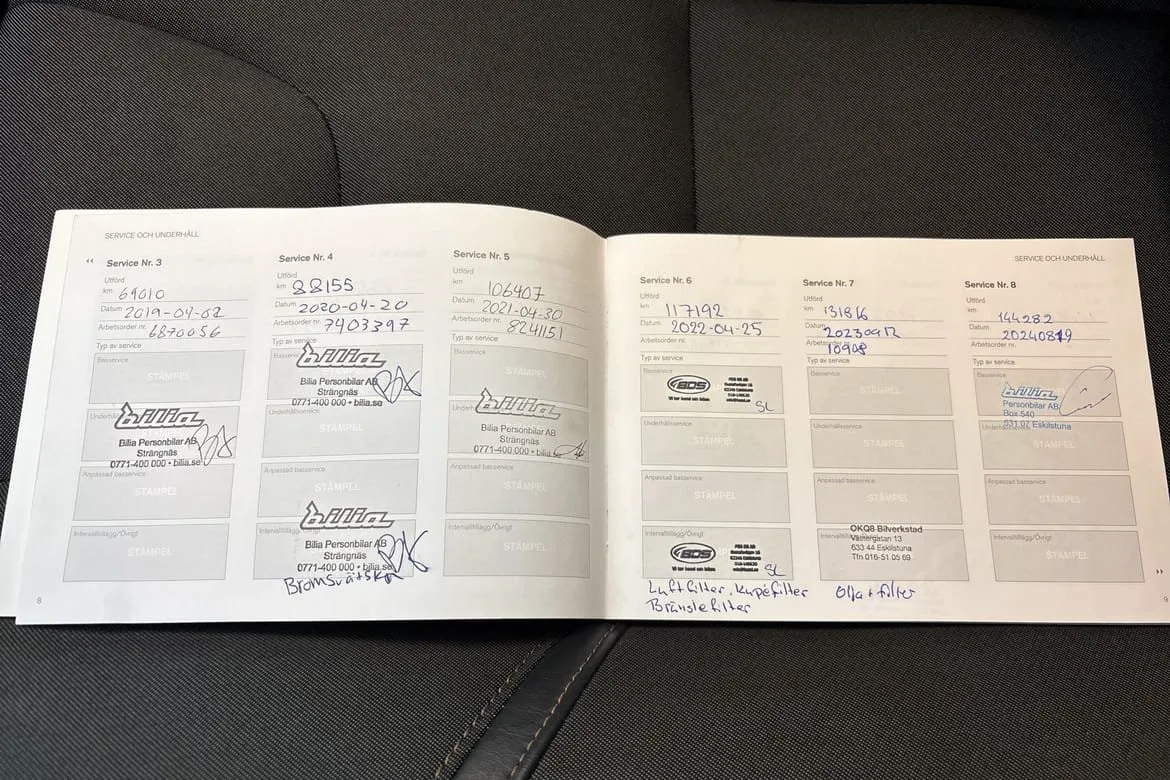 SERVICE OCH UNDERHÅLL
Service Nr. 3
Utförd
km 69010
Datum 2019-04-02
Arbetsorder nr. 6870056
Typ av service
Basservice
STÄMPEL
bilia
Bilia Personbilar AB
Strängnäs
0771-400 000 • bilia.se
Anpassad basservice
STÄMPEL
Intervalltillägg/Övrigt
STÄMPEL
8
Service Nr. 4
Utförd
km 88155
Datum 2020-04-20
Arbetsorder nr. 7403397
Typ av service
bilia
Bilia Personbilar AB
Strängnäs
0771-400 000 • bilia.se
Underhållsservice
STÄMPEL
Anpassad basservice
STÄMPEL
bilia
Bilia Personbilar AB
Strängnäs
0771-400 000 • bilia.se
Bromsvätska
Service Nr. 5
Utförd
km 106407
Datum 2021-04-30
Arbetsorder nr. 8241151
Typ av service
Basservice
STÄMPEL
bilia
Bilia Personbilar AB
Strängnäs
0771-400 000 • bilia.se
Anpassad basservice
STÄMPEL
Intervalltillägg/Övrigt
STÄMPEL
SERVICE OCH UNDERHÅLL
Service Nr. 6
Utförd
km 117192
Datum 2022-04-25
Arbetsorder nr.
Typ av service
Basservice
BDS
Vi tar hand om bilen
SL
Underhållsservice
STÄMPEL
Anpassad basservice
STÄMPEL
Intervalltillägg/Övrigt
BDS
Vi tar hand om bilen
SL
Luftfilter, Kupéfilter
Bränslefilter
Service Nr. 7
Utförd
km 131816
Datum 20230912
Arbetsorder nr. 10908
Typ av service
Basservice
STÄMPEL
Underhållsservice
STÄMPEL
Anpassad basservice
STÄMPEL
OKQ8 Bilverkstad
Västergatan 13
633 44 Eskilstuna
Tfn 016-51 05 69
Olja + filter
Service Nr. 8
Utförd
km 144282
Datum 20240819
Arbetsorder nr.
Typ av service
Basservice
bilia
Personbilar AB
Box 540
631 07 Eskilstuna
Underhållsservice
Anpassad basservice
STÄMPEL
Intervalltillägg/Övrigt
STÄMPEL
9